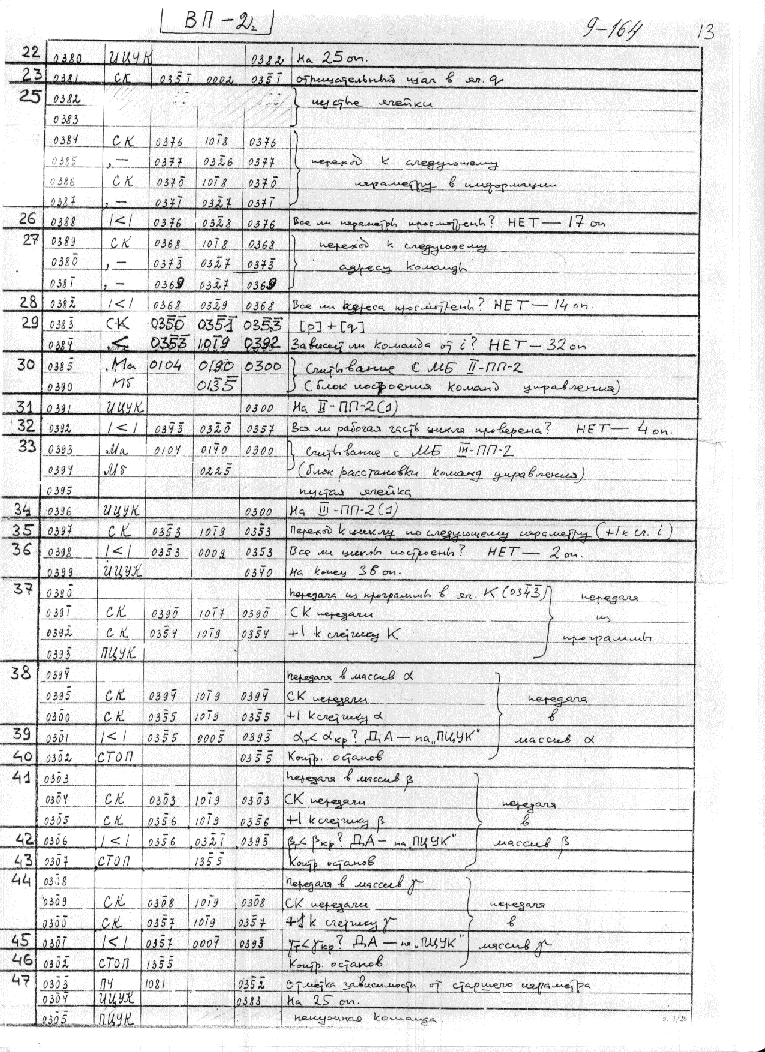 ВП-2
9-164 13
22 0380 ИЦУК 0382 На 25 оп.
23 0381 СК 035̄1̄ 0002 035̄1̄ отрицательный шаг в яч. q
25 0382 пустые ячейки
0383
0384 СК 0376 101̄8 0376
0385 ,— 0377 0326 0377 переход к следующему
0386 СК 0370̄ 101̄8 0370̄ параметру в информации
0387 ,— 0371̄ 032̄7 0371̄
26 0388 |<| 0376 032̄8 0376 Все ли параметры просмотрены? НЕТ — 17 оп
27 0389 СК 0368 101̄8 0368 переход к следующему
0380̄ ,— 0373̄ 032̄7 0373̄ адресу команды
0381̄ ,— 0369 032̄7 0369
28 0382̄ |<| 0368 032̄9 0368 Все ли адреса просмотрены? НЕТ — 14 оп.
29 0383̄ СК 035̄0̄ 035̄1̄ 035̄3̄ [p] + [q]
0384̄ ,< 035̄3̄ 101̄9 0392 Зависит ли команда от i? НЕТ — 32 оп
30 0385̄ Ма 0104 0190̄ 0300 Считывание с МБ II-ПП-2
0390 Мб 013̄5̄ (блок построения команд управления)
31 0391 ИЦУК 0300 На II-ПП-2 (1)
32 0392 |<| 0345̄ 032̄0̄ 0357 Вся ли рабочая часть цикла проверена? НЕТ — 4 оп.
33 0393 Ма 0104 0140 0300 Считывание с МБ III-ПП-2
0394 Мб 0225̄ (блок расстановки команд управления)
0395 пустая ячейка
34 0396 ИЦУК 0300 На III-ПП-2 (1)
35 0397 СК 035̄3 101̄9 035̄3 Переход к циклу по следующему параметру (+1 к сч. i)
36 0398 |<| 035̄3 0009 0353 Все ли циклы построены? НЕТ — 2 оп.
0399 ИЦУК 0340 на конец 38 оп.
37 0390̄ передача из программы в яч. К (034̄3̄) передача
0391̄ СК 0390̄ 101̄7 0390̄ СК передачи из
0392̄ СК 035̄4 101̄9 035̄4 +1 к счетчику К программы
0393̄ ПЦУК
38 0394̄ передача в массив α
0395̄ СК 0394̄ 101̄9 0394̄ СК передачи передача
030̄0 СК 035̄5 101̄9 035̄5 +1 к счетчику α в
39 030̄1 |<| 035̄5 0005̄ 0393̄ α₁<αкр? ДА — на „ПЦУК" массив α
40 030̄2 СТОП 035̄5̄ Контр. останов
41 030̄3 передача в массив β
030̄4 СК 030̄3 101̄9 030̄3 СК передачи передача
030̄5 СК 035̄6 101̄9 035̄6 +1 к счетчику β в
42 030̄6 |<| 035̄6 032̄1̄ 0393̄ β₁<βкр? ДА — на „ПЦУК" массив β
43 030̄7 СТОП 135̄5̄ Контр. останов
44 030̄8 передача в массив γ
030̄9 СК 030̄8 101̄9 030̄8 СК передачи передача
030̄0̄ СК 035̄7 101̄9 035̄7 +1 к счетчику γ в
45 030̄1̄ |<| 035̄7 0007 0393̄ γ₁<γкр? ДА — на „ПЦУК" массив γ
46 030̄2̄ СТОП 135̄5̄ Контр. останов
47 030̄3̄ ПЧ 1081 035̄2̄ отметка зависимости от старшего параметра
030̄4̄ ИЦУК 0383 На 25 оп.
030̄5̄ ПЦУК ненужная команда